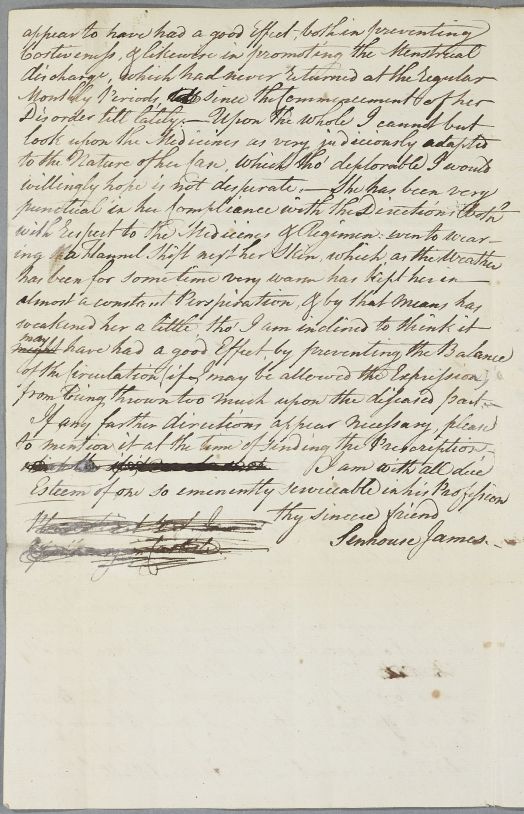 appear to have had a good Effect both in preventing
Costiveness, & likewise in promoting the Menstrual
discharge, which had never returned at the regular
Monthly Periods, since the Commencement of her
Disorder till lately. — Upon the whole I cannot but
look upon the Medicines as very judiciously adapted
to the Nature of her Case, which tho' deplorable I would
willingly hope is not desperate. — She has been very
punctual in her Compliance with the Directions both
with respect to the Medicines & Regimen. even to wear-
ing a Flannel Shift next her Skin, which as the Weather
has been for some time very warm has kept her in
almost a constant Perspiration, & by that Means has
weakened her a little, tho' I am inclined to think it
may
might have had a good Effect, by preventing the Balance
of the Circulation (if I may be allowed the Expression)
from being thrown too much upon the diseased part. —
If any farther directions appear necessary, please
to mention it at the time of sending the Prescription —
I am with all due
Esteem of one so eminently serviceable in his Profession
thy sincere friend
Senhouse James. —